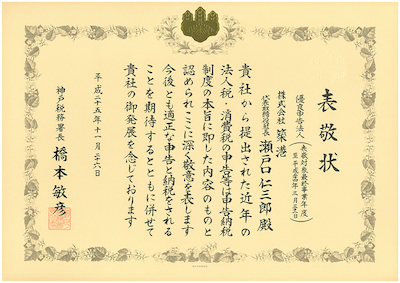 表敬状
優良申告法人
表敬対象最終事業年度
株式会社 築港
代表取締役社長 瀬戸口仁三郎 殿
貴社から提出された近年の
法人税・消費税の申告等は申告納税
制度の本旨に即した内容のものと
認められここに深く敬意を表します
今後とも適正な申告と納税をされる
ことを期待するとともに併せて
貴社の御発展を念じております
平成二十五年十一月二十六日
神戸税務署長
橋本敏彦